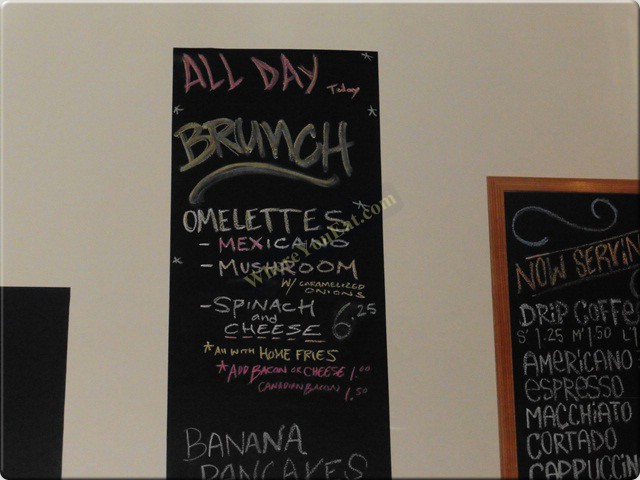 ALL DAY Today
BRUNCH
OMELETTES
- MEXICANO
- MUSHROOM
W/ CARAMELIZED
ONIONS
- SPINACH
and
CHEESE
6.25
*All WITH HOME FRIES
*ADD BACON OR CHEESE 1.00
CANADIAN BACON 1.50
BANANA
PANCAKES
NOW SERVIN
DRIP COFFE
S 1.25 M 1.50 L 1
AMERICANO
ESPRESSO
MACCHIATO
CORTADO
CAPPUCCIN
WhereYouEat.com